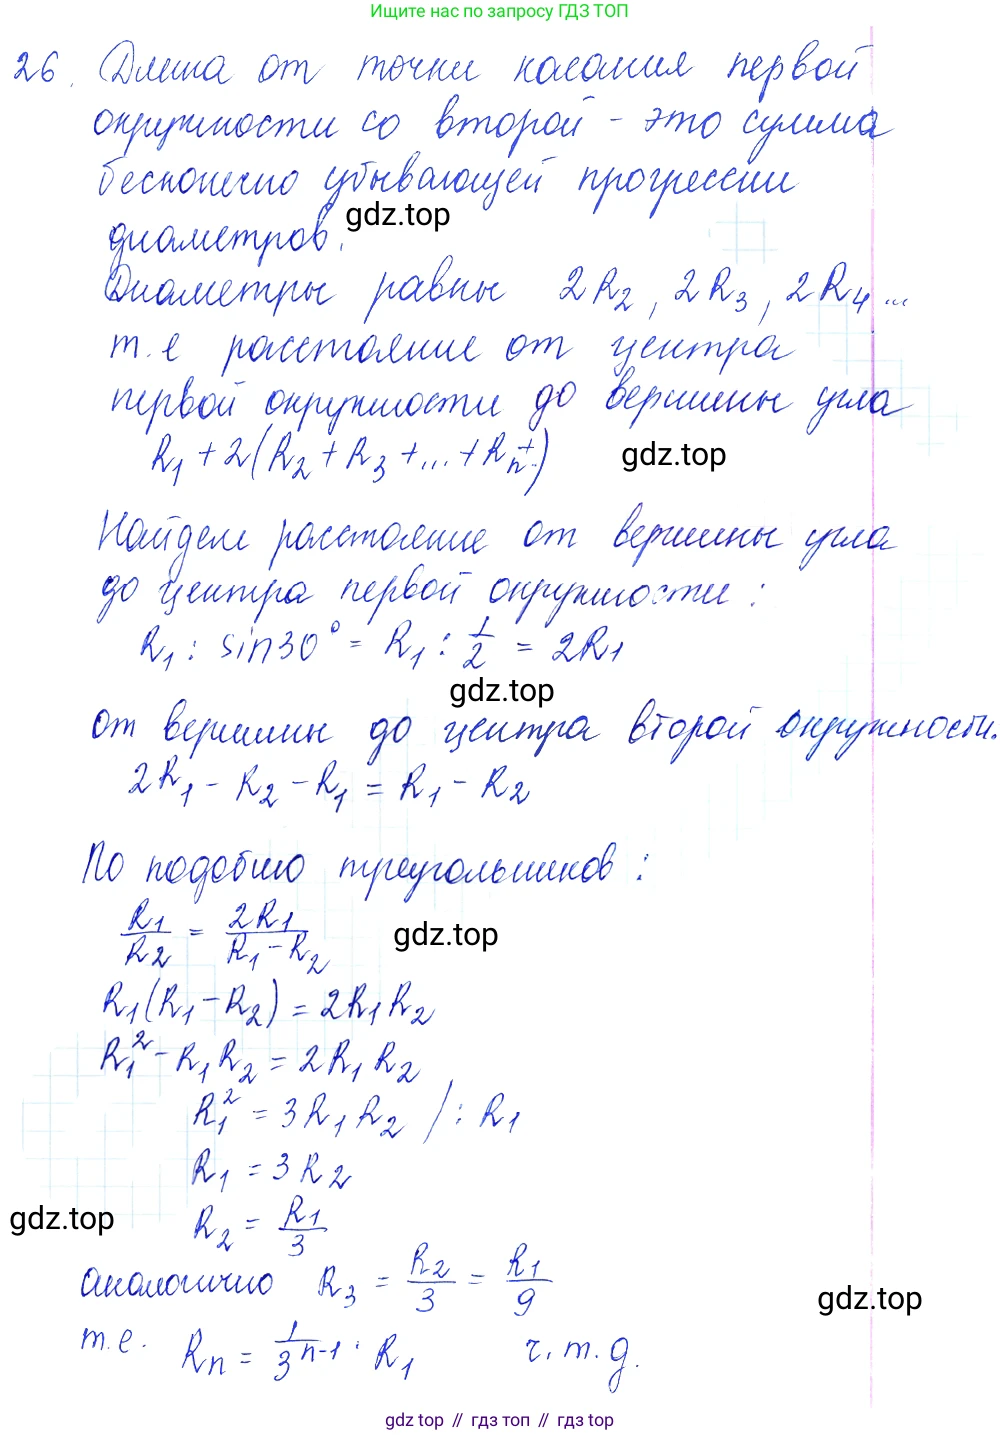 Ищите нас по запросу ГДЗ ТОП
26. Длина от точки касания первой
окружности со второй - это сумма
бесконечно убывающей прогрессии
gdz.top
диаметров.
Диаметры равны 2R₂, 2R₃, 2R₄...
т.е расстояние от центра
первой окружности до вершины угла
R₁ + 2(R₂ + R₃ + ... + Rₙ+...)
gdz.top
Найдем расстояние от вершины угла
до центра первой окружности:
R₁ : sin30° = R₁ : 1/2 = 2R₁
gdz.top
от вершины до центра второй окружности.
2R₁ - R₂ - R₁ = R₁ - R₂
По подобию треугольников:
R₁/R₂ = 2R₁/(R₁ - R₂)
gdz.top
R₁(R₁ - R₂) = 2R₁R₂
R₁² - R₁R₂ = 2R₁R₂
R₁² = 3R₁R₂ / : R₁
R₁ = 3R₂
gdz.top
R₂ = R₁/3
аналогично R₃ = R₂/3 = R₁/9
gdz.top
т.е. Rₙ = 1/3ⁿ⁻¹ · R₁ ч.т.д.
gdz top // гдз топ // гдз top